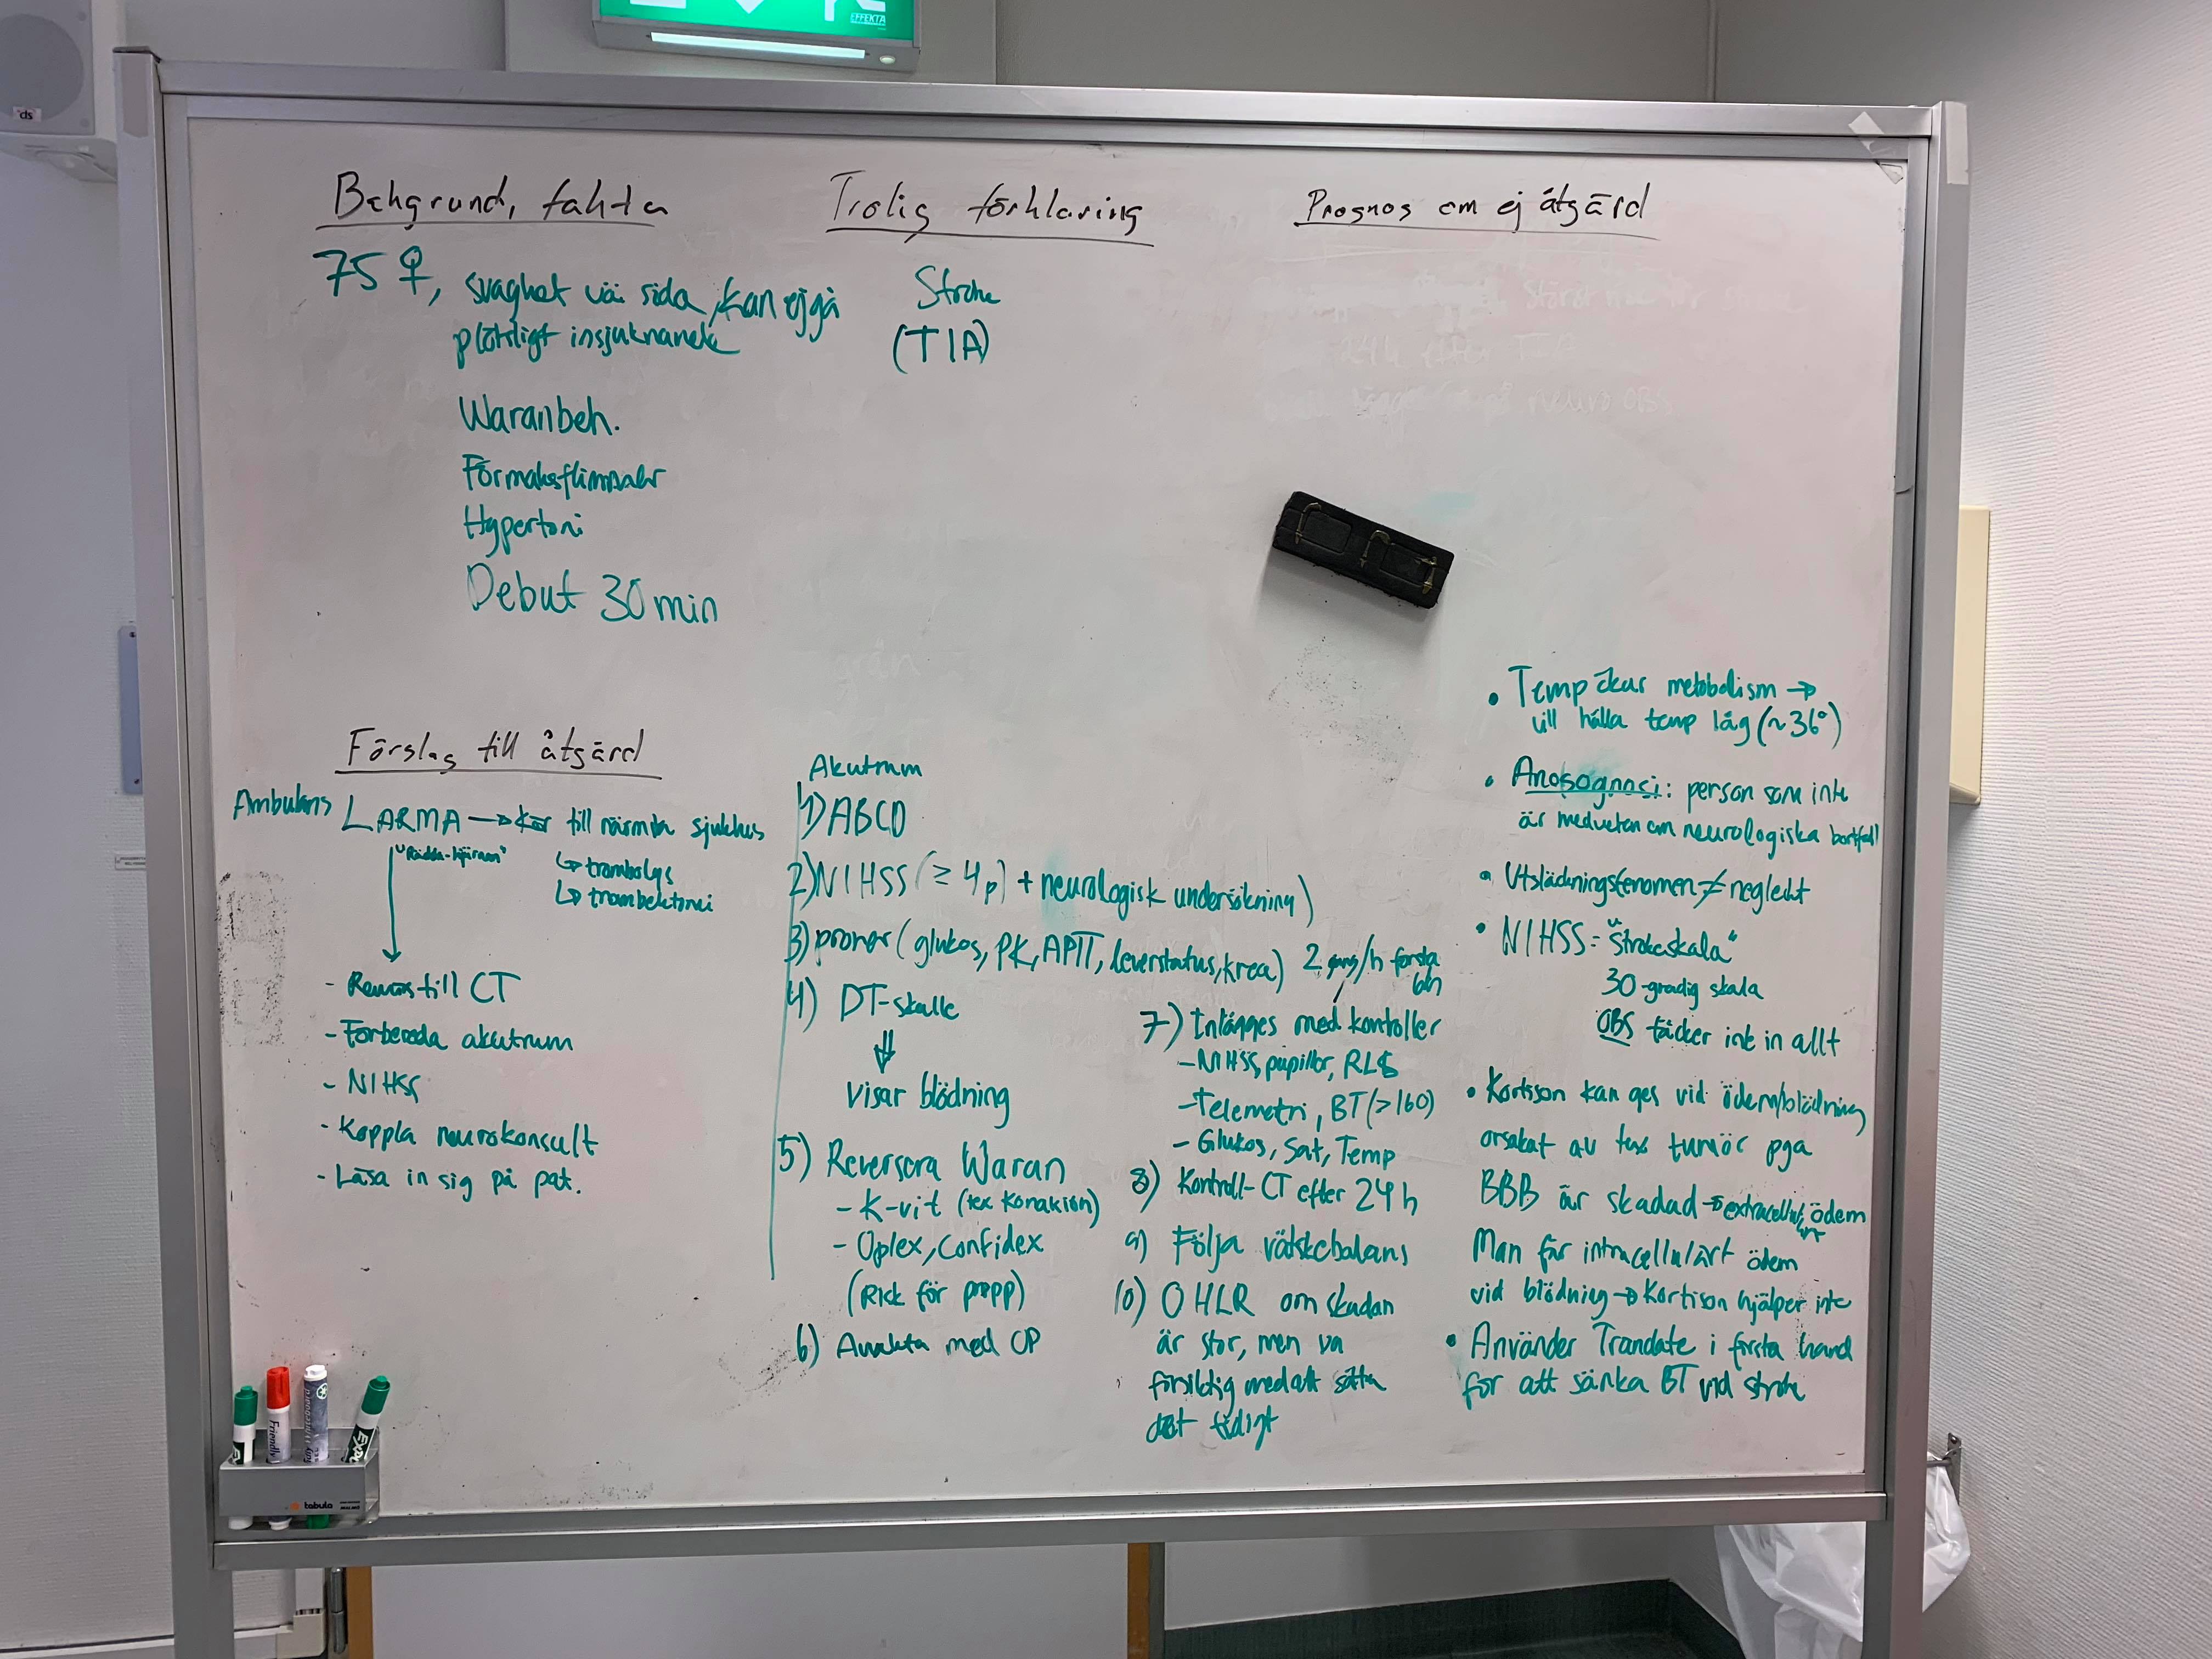 EFFEKTA
Bakgrund, fakta
75 ♀, svaghet vä. sida, kan ej gå
plötsligt insjuknande
Waranbeh.
Förmaksflimmer
Hypertoni
Debut 30 min
Trolig förklaring
Stroke
(TIA)
Prognos om ej åtgärd
Störst risk för stroke
24h efter TIA
på neuro OBS
grön
Förslag till åtgärd
Ambulans LARMA → Kör till närmsta sjukhus
"Rädda-hjärnan"
↳ trombolys
↳ trombektomi
- Remiss till CT
- Förbereda akutrum
- NIHSS
- Koppla neurokonsult
- Läsa in sig på pat.
Akutrum
1) ABCD
2) NIHSS (≥ 4p) + neurologisk undersökning)
3) prover (glukos, PK, APTT, leverstatus, krea)
4) DT-skalle
⇓
visar blödning
5) Reversera Waran
- K-vit (tex Konakion)
- Oplex, Confidex
(Risk för propp)
6) Avvakta med OP
2 gång/h första
6h
7) Inlägges med kontroller
- NIHSS, pupiller, RLS
- Telemetri, BT (>160)
- Glukos, Sat, Temp
8) Kontroll-CT efter 24 h
9) Följa vätskebalans
10) 0 HLR om skadan
är stor, men va
försiktig med att sätta
det tidigt
• Temp ökar metabolism →
vill hålla temp låg (~36°)
• Anosognosi: person som inte
är medveten om neurologiska bortfall
• Utsläckningsfenomen ≠ neglekt
• NIHSS = "Strokeskala"
30-gradig skala
OBS täcker inte in allt
• Kortison kan ges vid ödem/blödning
orsakat av tex tumör pga
BBB är skadad → extracellulärt ödem
Man får intracellulärt ödem
vid blödning → Kortison hjälper inte
• Använder Trandate i första hand
för att sänka BT vid stroke
Friendly
EXPO
tabula